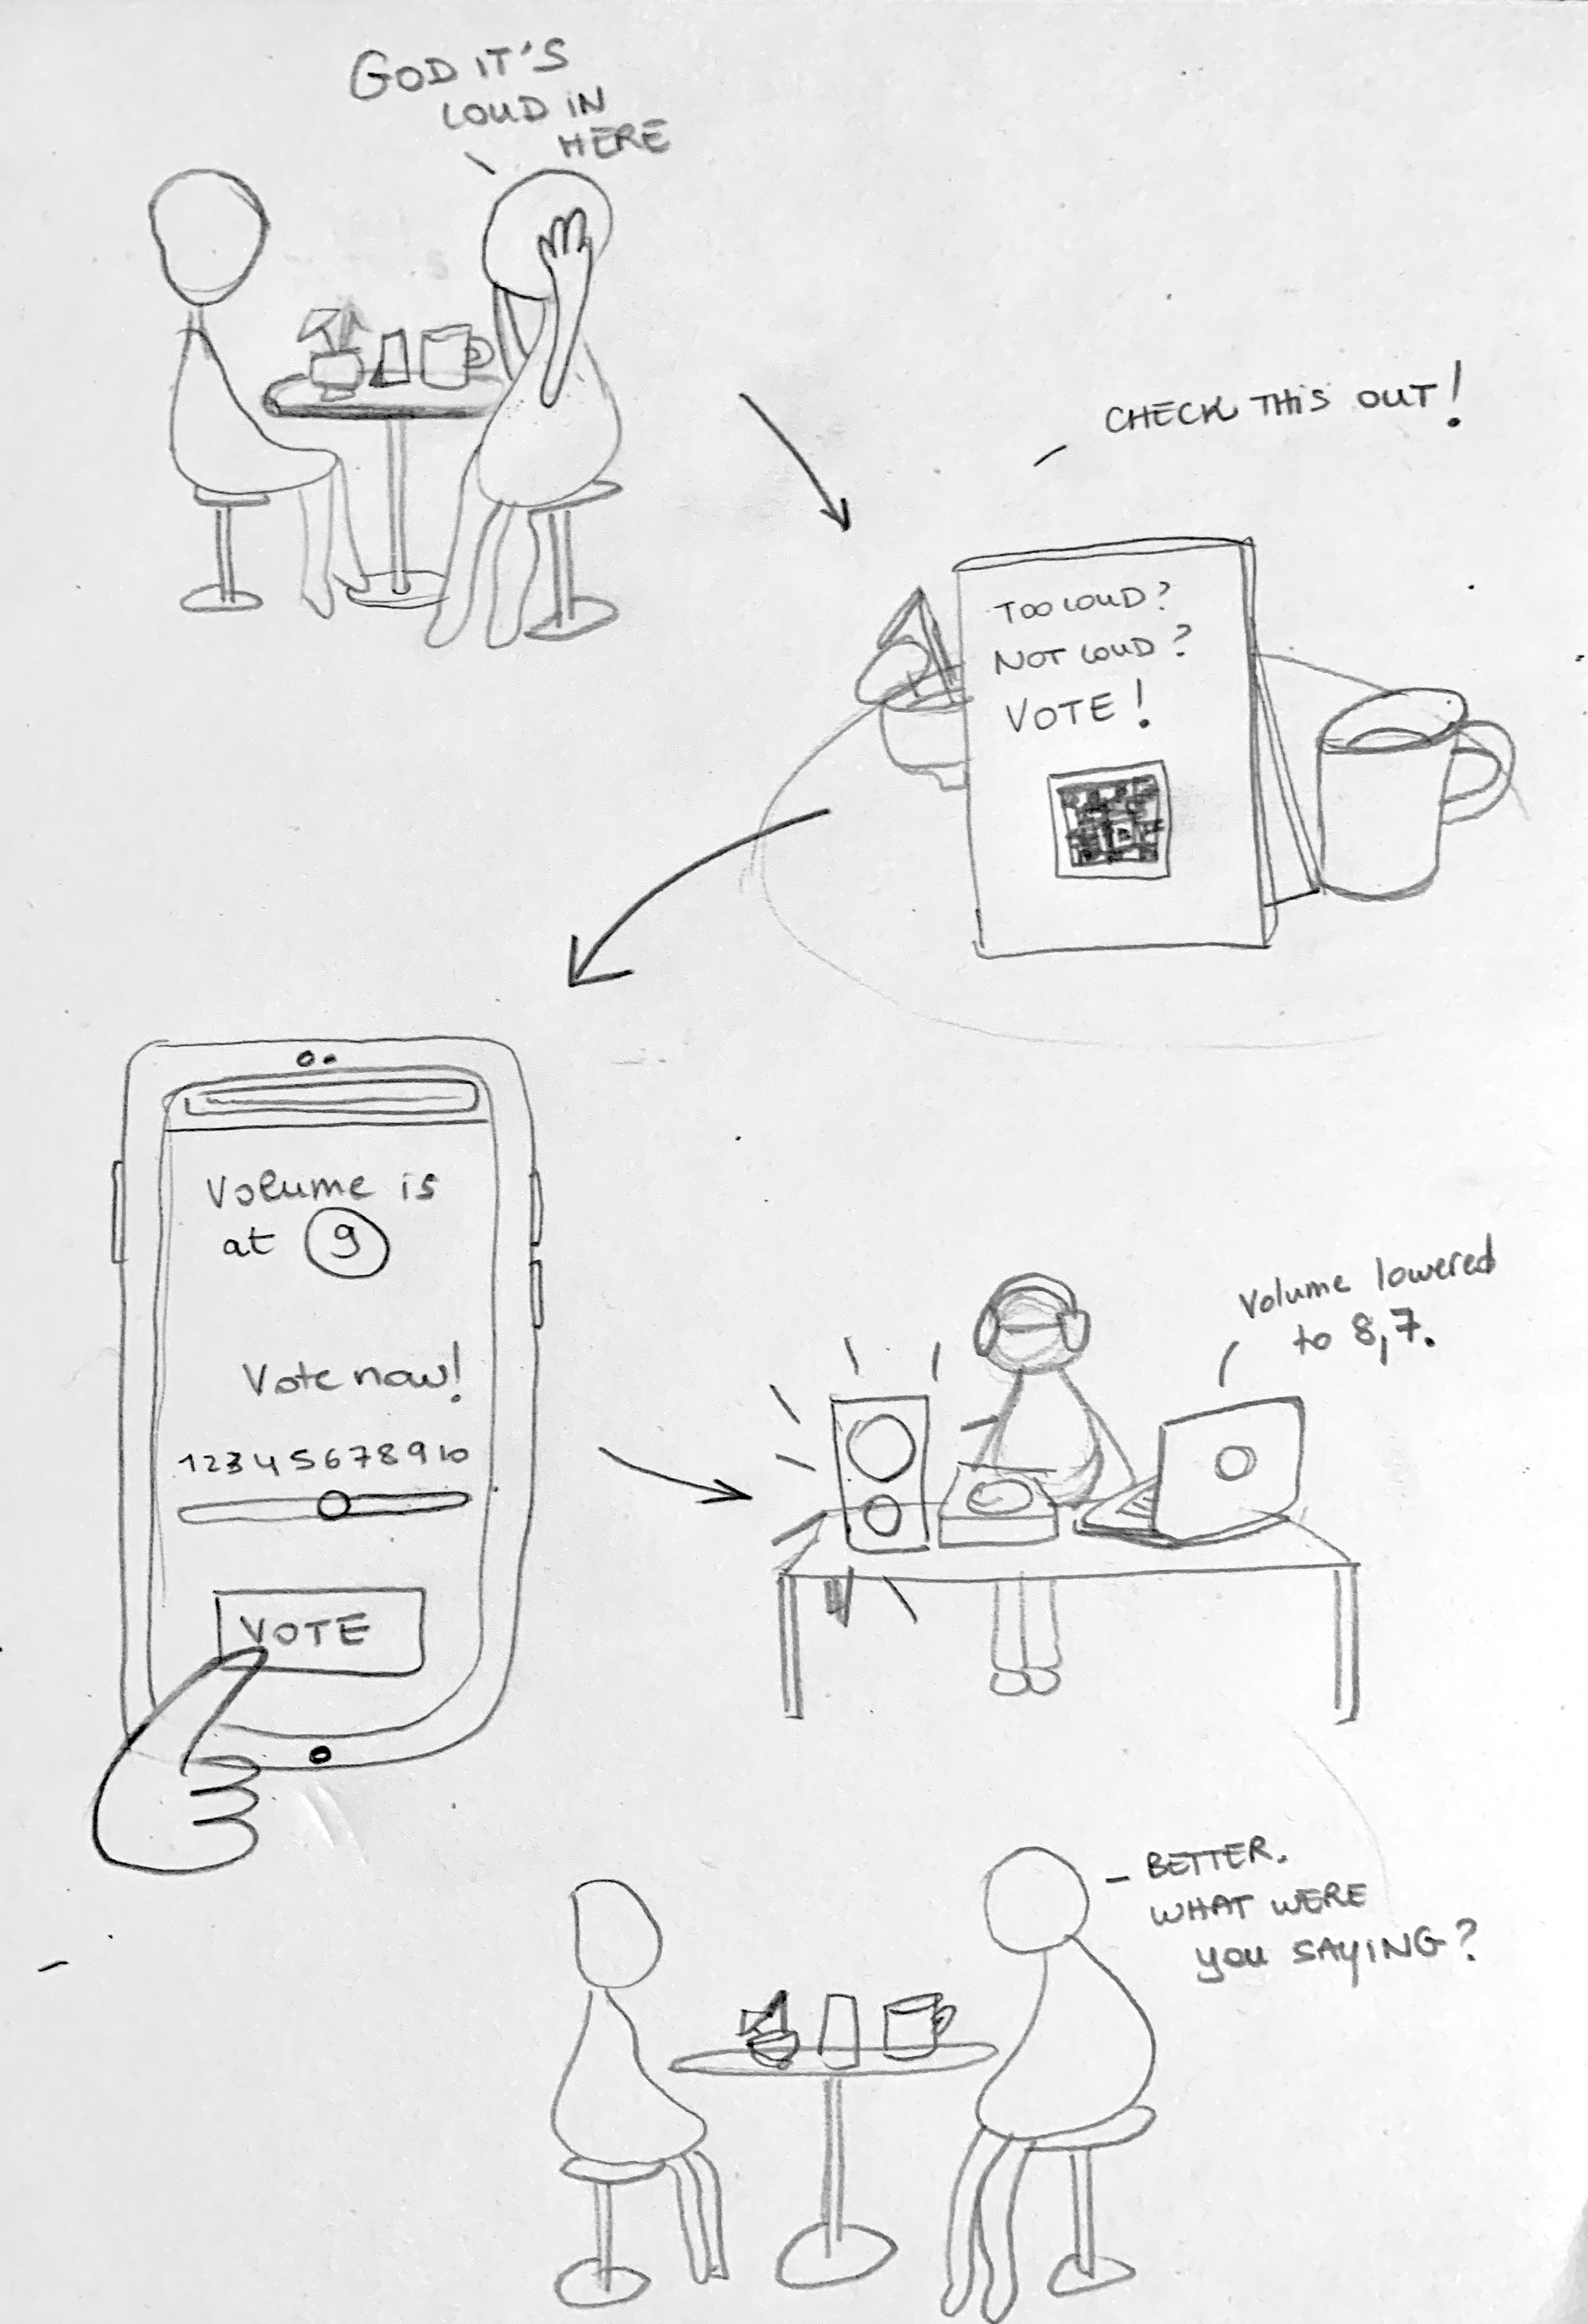 GOD IT'S
LOUD IN
HERE
CHECK THIS OUT!
TOO LOUD?
NOT LOUD?
VOTE!
Volume is
at 9
Vote now!
1 2 3 4 5 6 7 8 9 10
VOTE
Volume lowered
to 8,7.
- BETTER.
WHAT WERE
YOU SAYING?